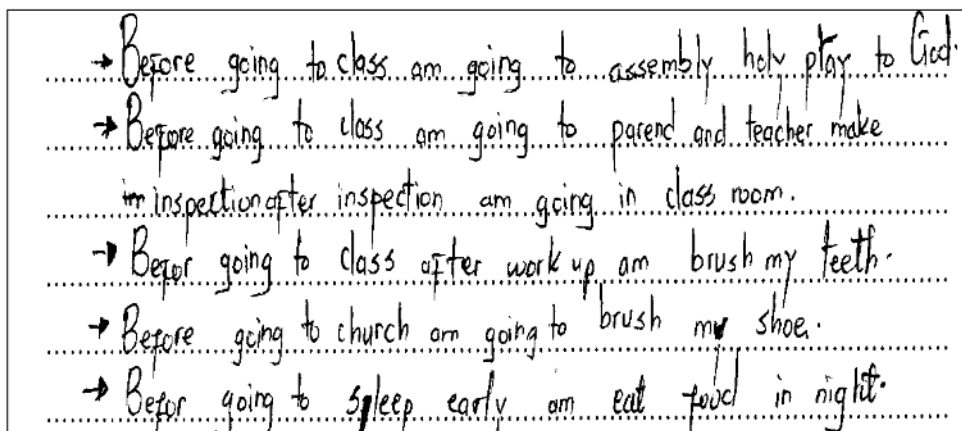 → Before going to class am going to assembly holy play to God.
→ Before going to class am going to parend and teacher make
inspection after inspection am going in class room.
→ Befor going to class after work up am brush my teeth.
→ Before going to church am going to brush my shoe.
→ Befor going to sleep early am eat food in night.